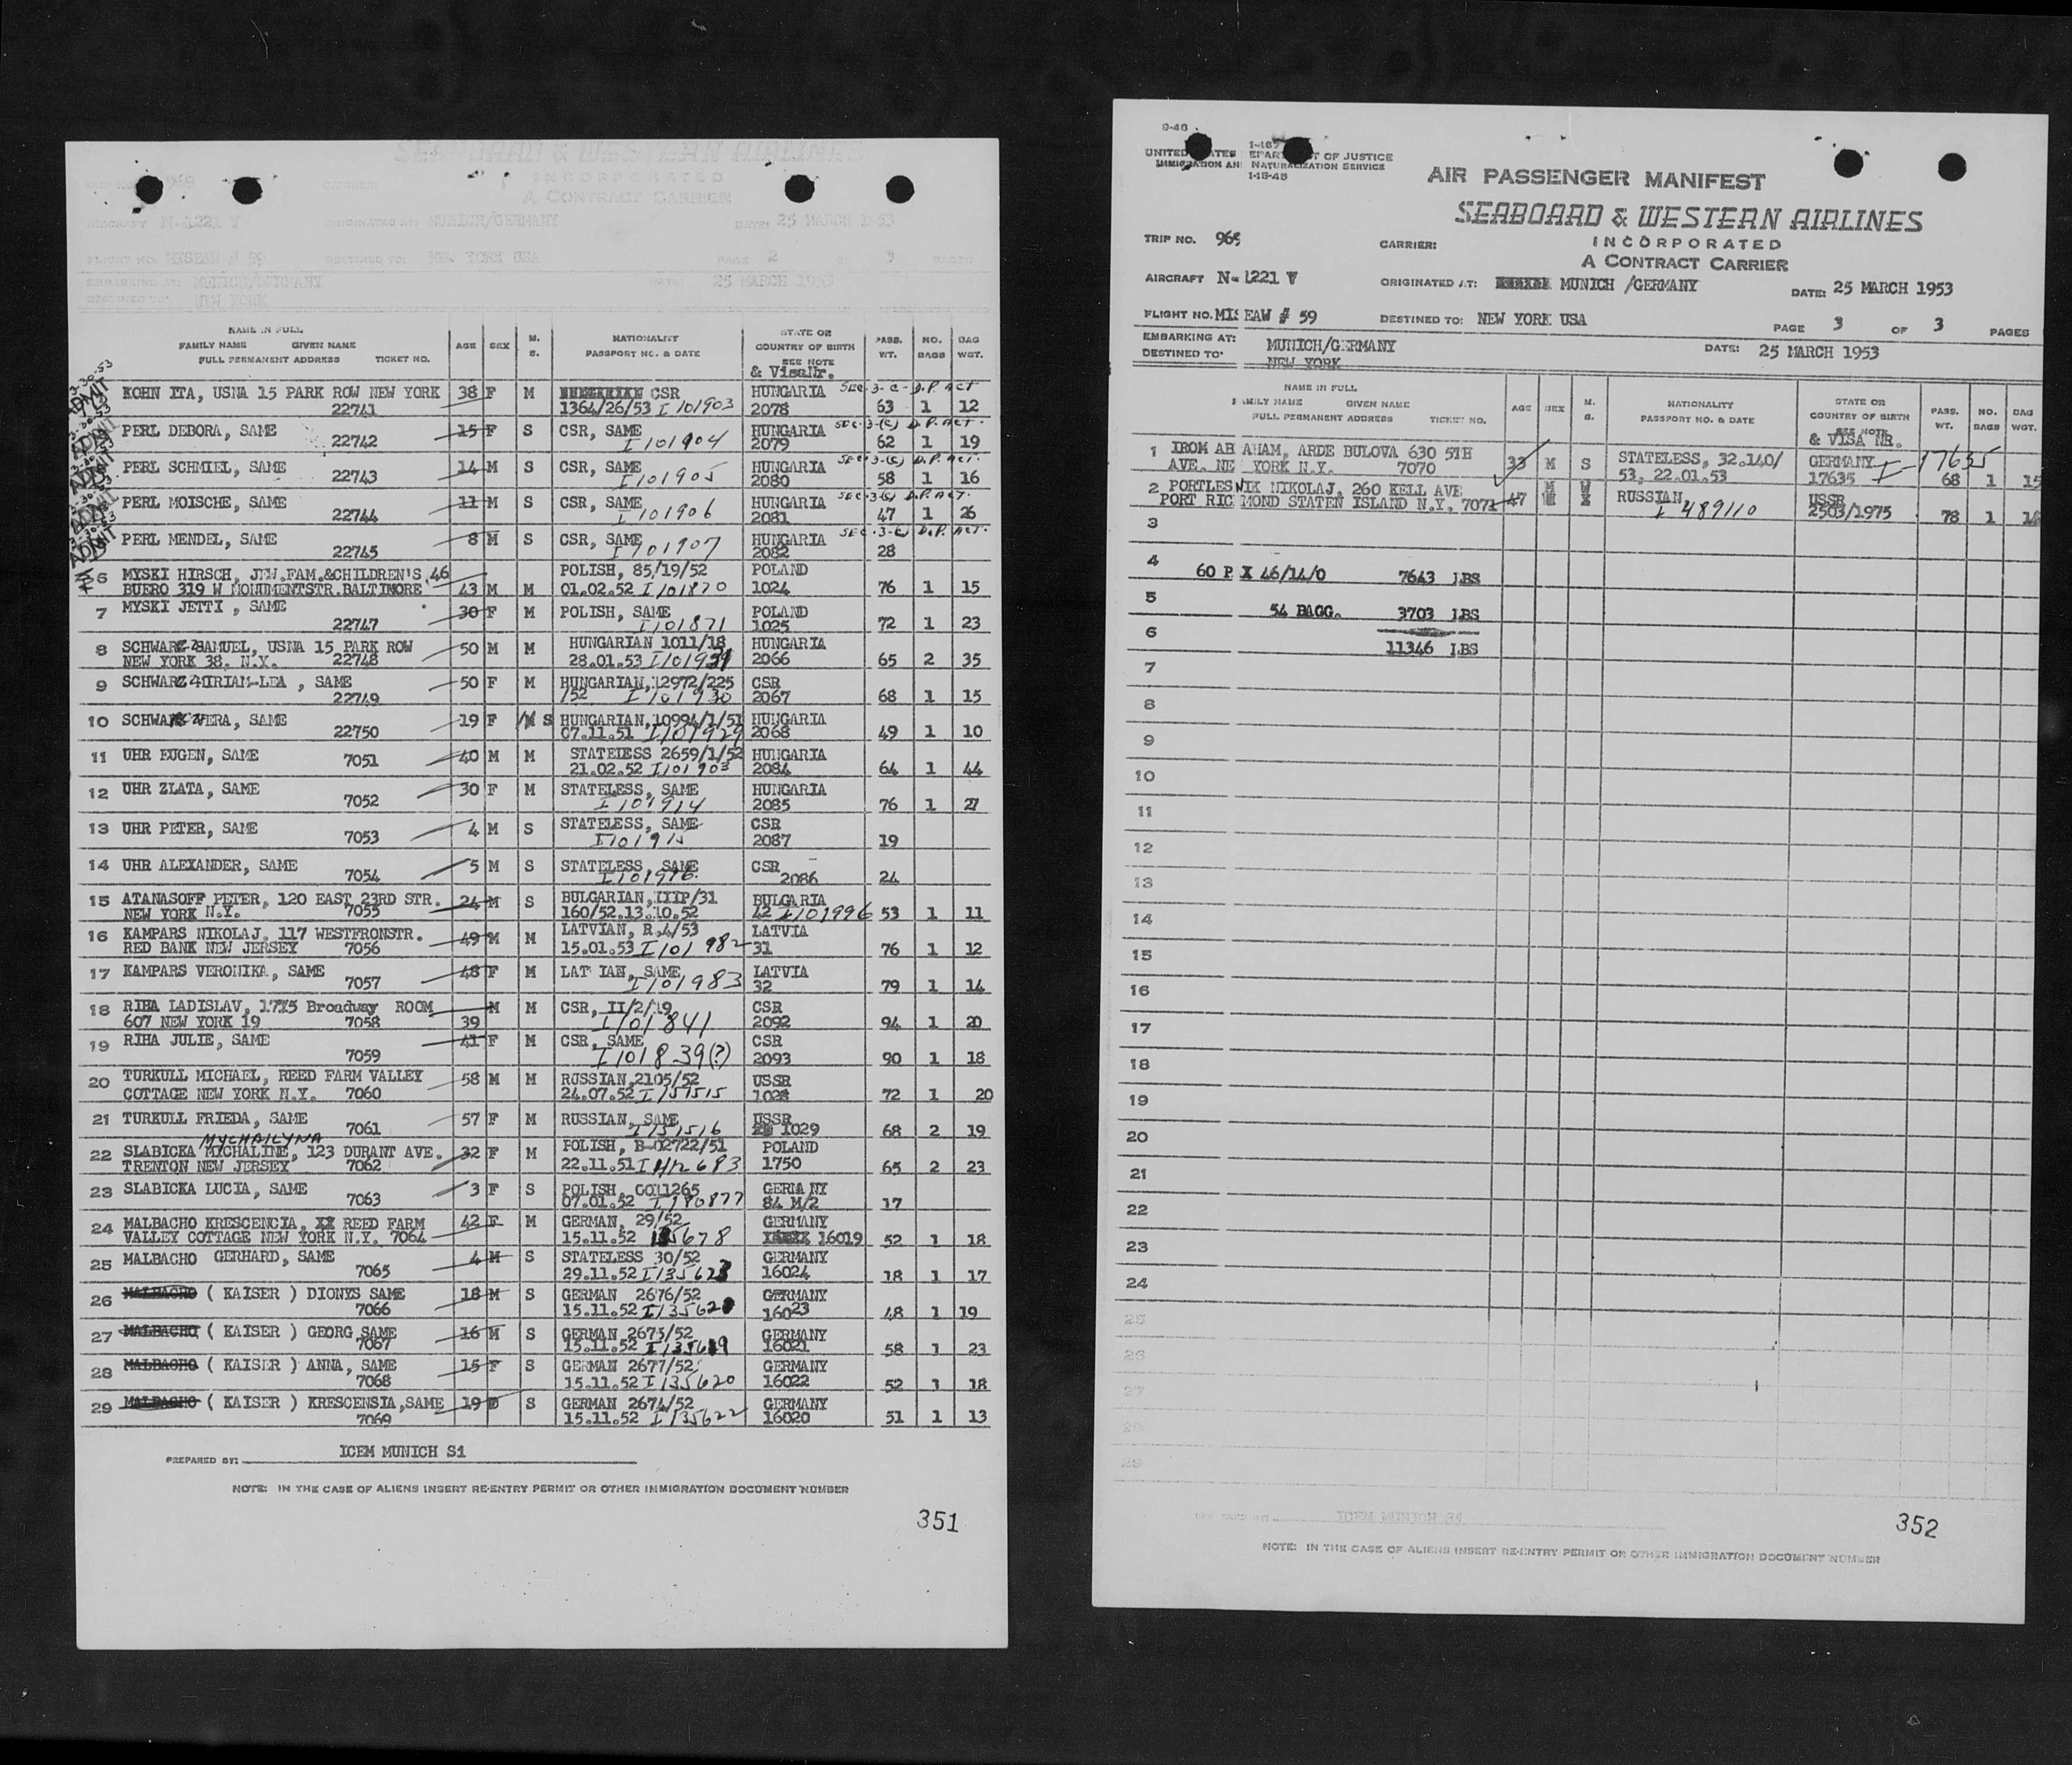 SEABOARD & WESTERN AIRLINES
INCORPORATED
A CONTRACT CARRIER
AIRCRAFT N-1221 V ORIGINATED AT: MUNICH/GERMANY DATE: 25 MARCH 1953
FLIGHT NO. MISEAW # 59 DESTINED TO: NEW YORK USA PAGE 2 OF 3 PAGES
EMBARKING AT: MUNICH/GERMANY DATE: 25 MARCH 1953
DESTINED TO: NEW YORK
NAME IN FULL
FAMILY NAME GIVEN NAME
FULL PERMANENT ADDRESS TICKET NO.
AGE SEX M. S.
NATIONALITY
PASSPORT NO. & DATE
STATE OR
COUNTRY OF BIRTH
SEE NOTE
& VisaNr.
PASS. WT. NO. BAGS BAG WGT.
KOHN ITA, USNA 15 PARK ROW NEW YORK 38 F M CSR HUNGARIA SEC-3-C-D.P. ACT
22741 1364/26/53 I 101903 2078 63 1 12
PERL DEBORA, SAME 15 F S CSR, SAME HUNGARIA SEC-3-(C) D.P. ACT.
22742 I 101904 2079 62 1 19
PERL SCHMIEL, SAME 14 M S CSR, SAME HUNGARIA SEC-3-(C) D.P. ACT.
22743 I 101905 2080 58 1 16
PERL MOISCHE, SAME 11 M S CSR, SAME HUNGARIA SEC-3-(C) D.P. ACT.
22744 I 101906 2081 47 1 26
PERL MENDEL, SAME 8 M S CSR, SAME HUNGARIA SEC-3-(C) D.P. ACT.
22745 I 101907 2082 28
6 MYSKI HIRSCH, JEW.FAM.&CHILDREN'S 46 POLISH, 85/19/52 POLAND
BUERO 319 W MONUMENTSTR.BALTIMORE 43 M M 01.02.52 I 101870 1024 76 1 15
7 MYSKI JETTI, SAME 30 F M POLISH, SAME POLAND
22747 I 101871 1025 72 1 23
8 SCHWARZ SAMUEL, USNA 15 PARK ROW 50 M M HUNGARIAN 1011/18 HUNGARIA
NEW YORK 38. N.Y. 22748 28.01.53 I 101931 2066 65 2 35
9 SCHWARZ MIRIAM-LEA, SAME 50 F M HUNGARIAN,12972/225 CSR
22749 /52 I 101930 2067 68 1 15
10 SCHWARZ VERA, SAME 19 F S HUNGARIAN,10994/1/51 HUNGARIA
22750 07.11.51 I 101929 2068 49 1 10
11 UHR EUGEN, SAME 40 M M STATELESS 2659/1/52 HUNGARIA
7051 21.02.52 I 101903 2084 64 1 44
12 UHR ZLATA, SAME 30 F M STATELESS, SAME HUNGARIA
7052 I 101914 2085 76 1 27
13 UHR PETER, SAME 4 M S STATELESS, SAME CSR
7053 I 101915 2087 19
14 UHR ALEXANDER, SAME 5 M S STATELESS, SAME CSR
7054 I 101916 2086 24
15 ATANASOFF PETER, 120 EAST 23RD STR. 24 M S BULGARIAN,IIIP/31 BULGARIA
NEW YORK N.Y. 7055 160/52.13.10.52 42 I 101996 53 1 11
16 KAMPARS NIKOLAJ, 117 WESTFRONSTR. 49 M M LATVIAN, R.4/53 LATVIA
RED BANK NEW JERSEY 7056 15.01.53 I 101 982 31 76 1 12
17 KAMPARS VERONIKA, SAME 48 F M LAT IAN, SAME LATVIA
7057 I 101983 32 79 1 14
18 RIHA LADISLAV, 1775 Broadway ROOM M M CSR, II/2/19 CSR
607 NEW YORK 19 7058 39 I 101841 2092 94 1 20
19 RIHA JULIE, SAME 41 F M CSR, SAME CSR
7059 I 101839(?) 2093 90 1 18
20 TURKULL MICHAEL, REED FARM VALLEY 58 M M RUSSIAN,2105/52 USSR
COTTAGE NEW YORK N.Y. 7060 24.07.52 I 151515 1028 72 1 20
21 TURKULL FRIEDA, SAME 57 F M RUSSIAN, SAME USSR
7061 I 151516 1029 68 2 19
MYCHAILYNA
22 SLABICKA MICHALINE, 123 DURANT AVE. 32 F M POLISH, B-02722/51 POLAND
TRENTON NEW JERSEY 7062 22.11.51 1750 65 2 23
23 SLABICKA LUCIA, SAME 3 F S POLISH, 0011265 GERMANY
7063 07.01.52 I 180877 84 M/2 17
24 MALBACHO KRESCENCIA, XX REED FARM 42 F M GERMAN, 29/52 GERMANY
VALLEY COTTAGE NEW YORK N.Y. 7064 15.11.52 16019 52 1 18
25 MALBACHO GERHARD, SAME 4 M S STATELESS 30/52 GERMANY
7065 29.11.52 I 135623 16024 18 1 17
26 MALBACHO ( KAISER ) DIONYS SAME 18 M S GERMAN 2676/52 GERMANY
7066 15.11.52 I 135621 16023 48 1 19
27 MALBACHO ( KAISER ) GEORG SAME 16 M S GERMAN 2675/52 GERMANY
7067 15.11.52 I 135619 16021 58 1 23
28 MALBACHO ( KAISER ) ANNA, SAME 15 F S GERMAN 2677/52 GERMANY
7068 15.11.52 I 135620 16022 52 1 18
29 MALBACHO ( KAISER ) KRESCENSIA,SAME 19 S GERMAN 2674/52 GERMANY
7069 15.11.52 I 135622 16020 51 1 13
PREPARED BY: ICEM MUNICH S1
NOTE: IN THE CASE OF ALIENS INSERT RE-ENTRY PERMIT OR OTHER IMMIGRATION DOCUMENT NUMBER
351
I-467
UNITED STATES DEPARTMENT OF JUSTICE
IMMIGRATION AND NATURALIZATION SERVICE
AIR PASSENGER MANIFEST
SEABOARD & WESTERN AIRLINES
INCORPORATED
A CONTRACT CARRIER
TRIP NO. 969 CARRIER:
AIRCRAFT N-1221 V ORIGINATED AT: MUNICH /GERMANY DATE: 25 MARCH 1953
FLIGHT NO. MISEAW # 59 DESTINED TO: NEW YORK USA PAGE 3 OF 3 PAGES
EMBARKING AT: MUNICH/GERMANY DATE: 25 MARCH 1953
DESTINED TO: NEW YORK
NAME IN FULL
FAMILY NAME GIVEN NAME
FULL PERMANENT ADDRESS TICKET NO.
AGE SEX M. S.
NATIONALITY
PASSPORT NO. & DATE
STATE OR
COUNTRY OF BIRTH
SEE NOTE
& VISA NR.
PASS. WT. NO. BAGS BAG WGT.
1 IROM AB AHAM, ARDE BULOVA 630 5TH 33 M S STATELESS, 32.140/ GERMANY I-17635
AVE. NE YORK N.Y. 7070 53, 22.01.53 17635 68 1 15
2 PORTLESNIK NIKOLAJ, 260 KELL AVE 47 M W RUSSIAN USSR
PORT RIC MOND STATEN ISLAND N.Y. 7071 I 489110 2503/1975 78 1
3
4 60 P X 46/14/0 7643 LBS
5 54 BAGG. 3703 LBS
6 11346 LBS
7
8
9
10
11
12
13
14
15
16
17
18
19
20
21
22
23
24
25
26
27
28
29
ICEM MUNICH S1
NOTE: IN THE CASE OF ALIENS INSERT RE-ENTRY PERMIT OR OTHER IMMIGRATION DOCUMENT NUMBER
352